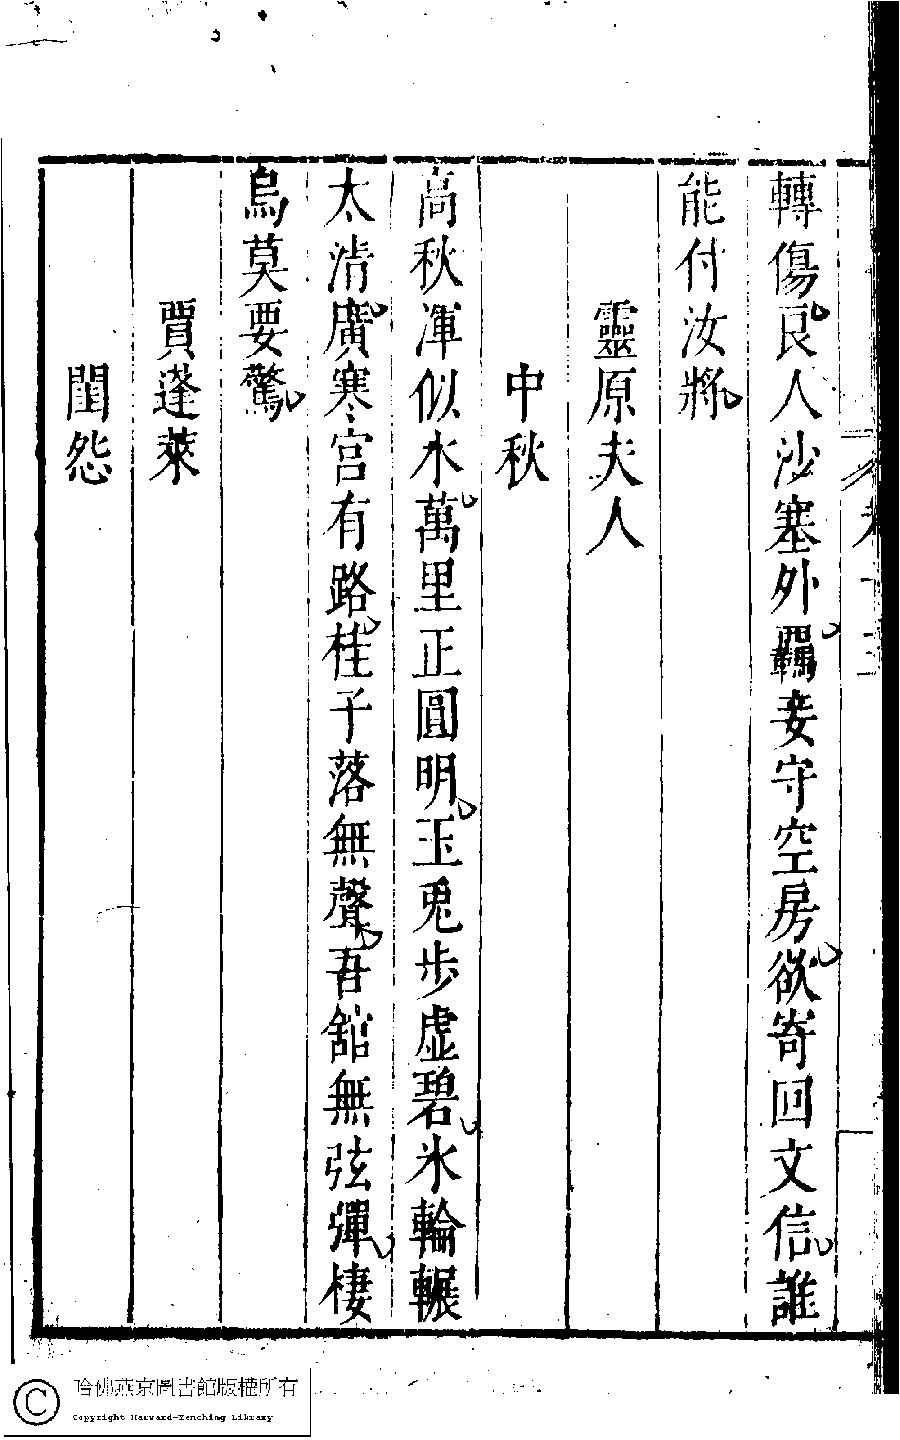 轉傷良人沙塞外羈妾守空房欲寄回文信誰
能付汝將
靈原夫人
中秋
高秋渾似水萬里正圓明玉兎步虛碧氷輪輾
太清廣寒宮有路桂子落無聲吾舘無弦彈棲
烏莫要驚
賈蓬萊
閨怨
哈佛燕京圖書館版權所有
Copyright Harvard-Yenching Library